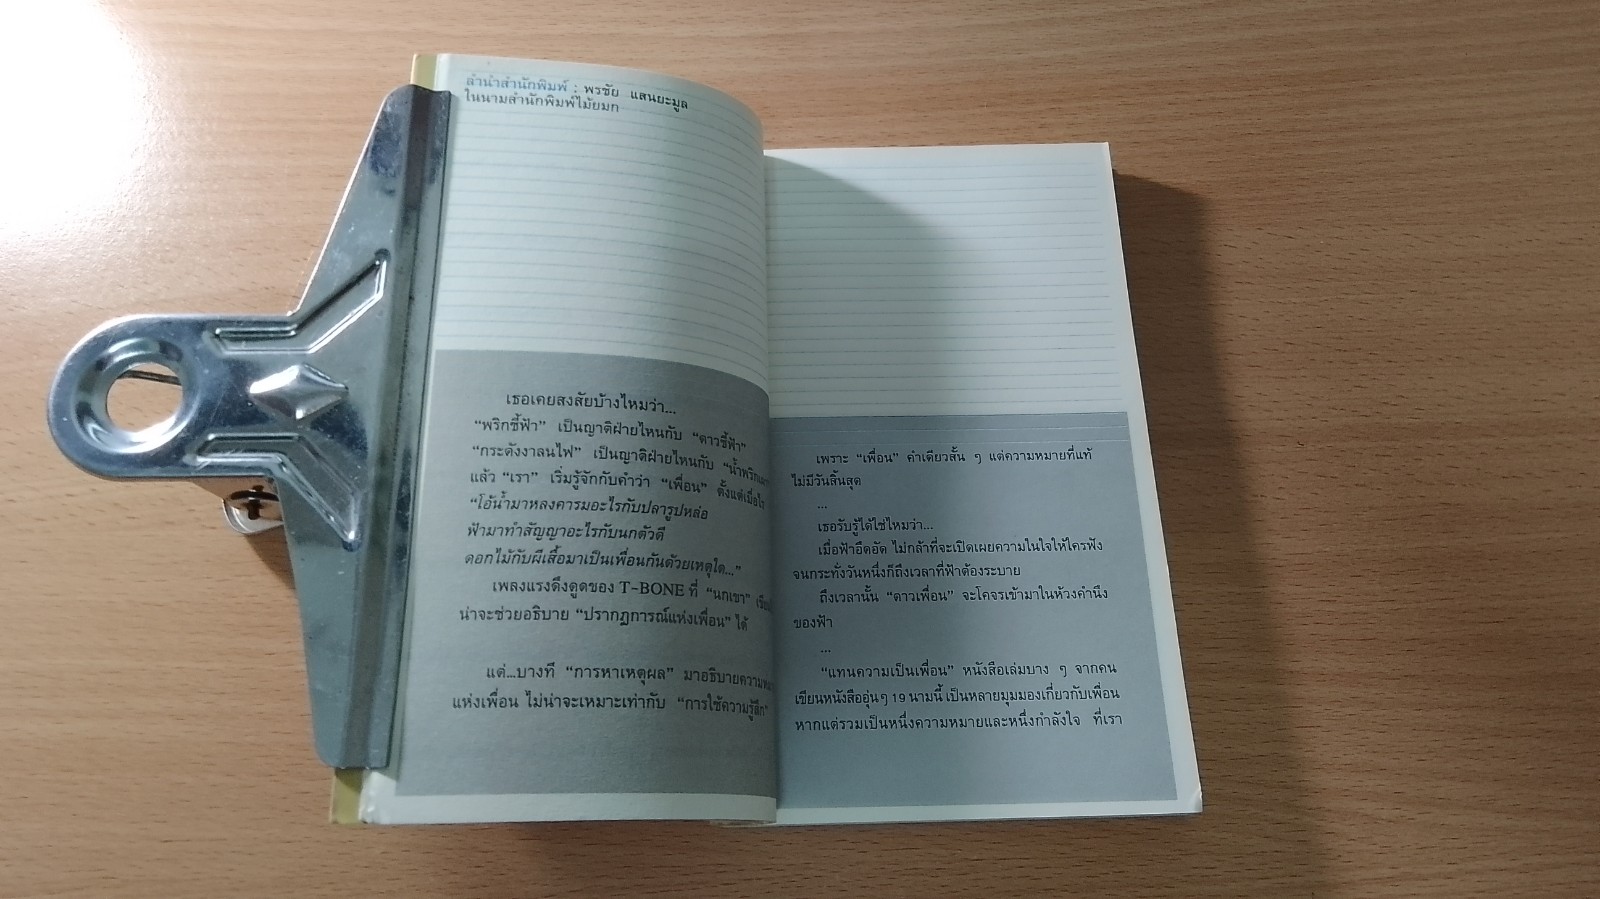 ลำนำสำนักพิมพ์ : พรชัย แสนยะมูล
ในนามสำนักพิมพ์ไม้ยมก
เธอเคยสงสัยบ้างไหมว่า...
“พริกชี้ฟ้า” เป็นญาติฝ่ายไหนกับ “ดาวชี้ฟ้า”
“กระดังงาลนไฟ” เป็นญาติฝ่ายไหนกับ
แล้ว “เรา” เริ่มรู้จักกับคำว่า “เพื่อน” ตั้งแต่เมื่อไร
“โอ้น้ำมาหลงคารมอะไรกับปลารูปหล่อ
ฟ้ามาทำสัญญาอะไรกับนกตัวดี
ดอกไม้กับผีเสื้อมาเป็นเพื่อนกันด้วยเหตุใด...”
เพลงแรงดึงดูดของ T-BONE ที่ “นกเขา”
น่าจะช่วยอธิบาย “ปรากฏการณ์แห่งเพื่อน” ได้
แต่...บางที “การหาเหตุผล” มาอธิบาย
แห่งเพื่อน ไม่น่าจะเหมาะเท่ากับ “การใช้ความรู้สึก”
เพราะ “เพื่อน” คำเดียวสั้น ๆ แต่ความหมายที่แท้
ไม่มีวันสิ้นสุด
...
เธอรับรู้ได้ใช่ไหมว่า...
เมื่อฟ้าอึดอัด ไม่กล้าที่จะเปิดเผยความในใจให้ใครฟัง
จนกระทั่งวันหนึ่งก็ถึงเวลาที่ฟ้าต้องระบาย
ถึงเวลานั้น “ดาวเพื่อน” จะโคจรเข้ามาในห้วงคำนึง
ของฟ้า
...
“แทนความเป็นเพื่อน” หนังสือเล่มบาง ๆ จากคน
เขียนหนังสืออุ่น ๆ 19 นามนี้ เป็นหลายมุมมองเกี่ยวกับเพื่อน
หากแต่รวมเป็นหนึ่งความหมายและหนึ่งกำลังใจ ที่เรา